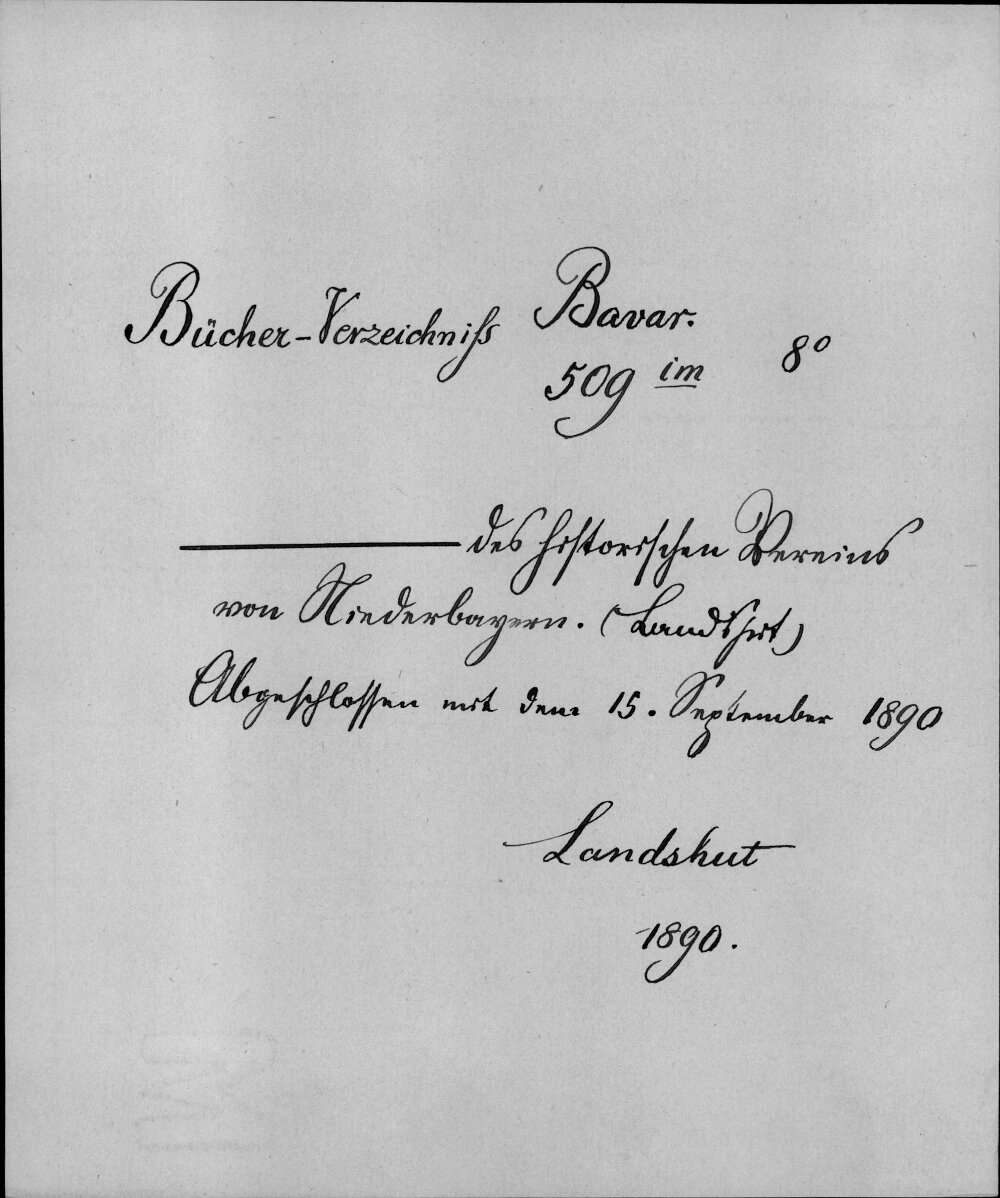 Bücher-Verzeichniß
Bavar.
509 im 8°
des historischen Vereins
von Niederbayern. (Landshut)
Abgeschlossen mit dem 15. September 1890
Landshut
1890.